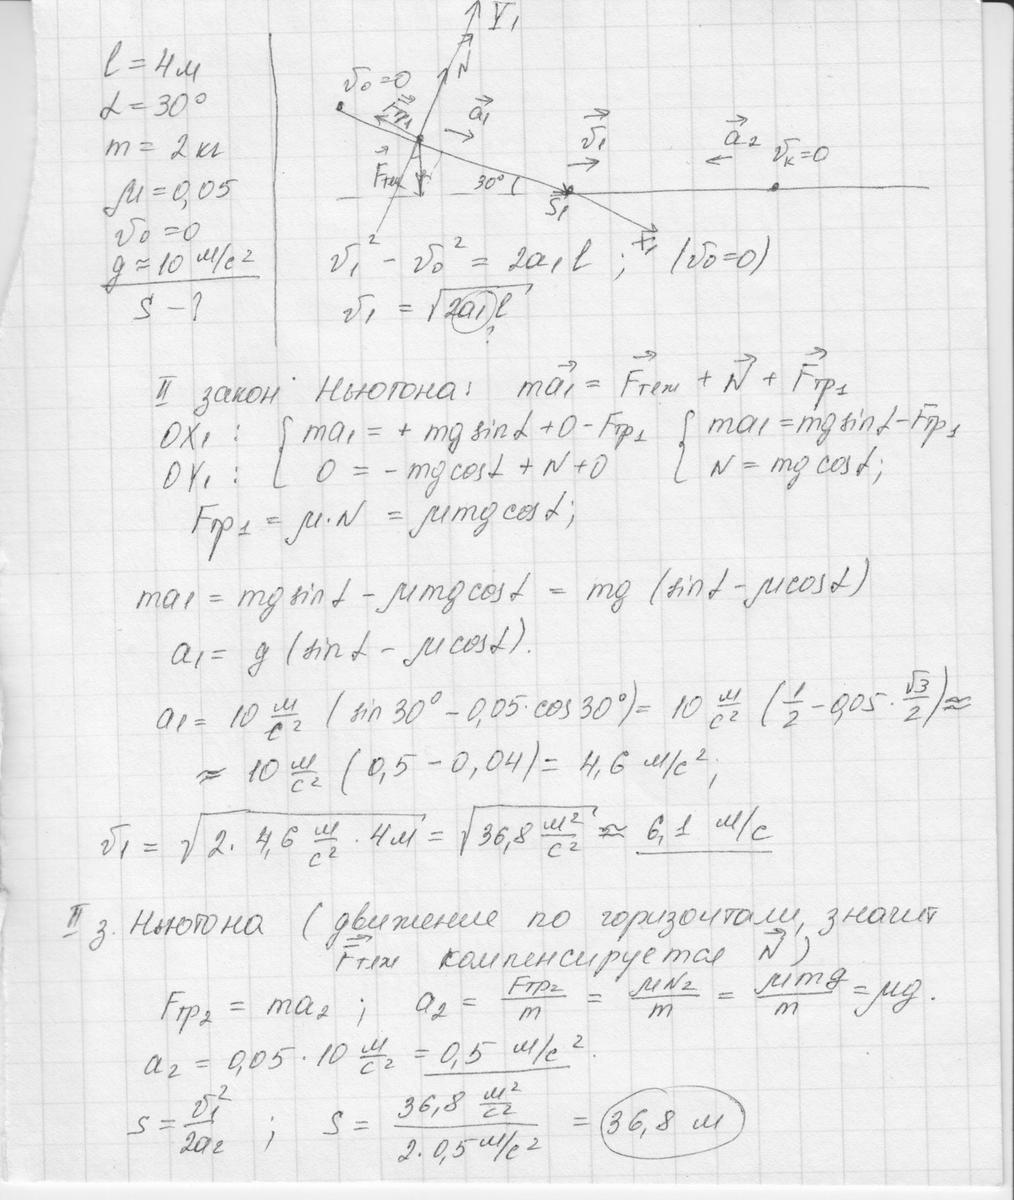 l = 4м
α = 30°
m = 2 кг
μ = 0,05
v₀ = 0
g ≈ 10 м/с²
S - ?
Y₁
N
v₀ = 0
Fтр₁
a₁
v₁
a₂
vк = 0
Fтяж
30°
S₁
X₁
v₁² - v₀² = 2a₁l ; (v₀ = 0)
v₁ = √(2a₁l)
?
II закон Ньютона: ma₁ = Fтяж + N + Fтр₁
OX₁ : { ma₁ = + mg sinα + 0 - Fтр₁ { ma₁ = mg sinα - Fтр₁
OY₁ : 0 = - mg cosα + N + 0 N = mg cosα;
Fтр₁ = μ·N = μmg cosα;
ma₁ = mg sinα - μmg cosα = mg (sinα - μcosα)
a₁ = g (sinα - μcosα).
a₁ = 10 м/с² (sin 30° - 0,05·cos 30°) = 10 м/с² (1/2 - 0,05·√3/2) ≈
≈ 10 м/с² (0,5 - 0,04) = 4,6 м/с²;
v₁ = √(2·4,6 м/с² · 4м) = √(36,8 м²/с²) ≈ 6,1 м/с
II з. Ньютона (движение по горизонтали, значит
Fтяж компенсируется N)
Fтр₂ = ma₂ ; a₂ = Fтр₂/m = μN₂/m = μmg/m = μg.
a₂ = 0,05·10 м/с² = 0,5 м/с².
S = v₁²/2a₂ ; S = 36,8 м²/с² / 2·0,5 м/с² = 36,8 м